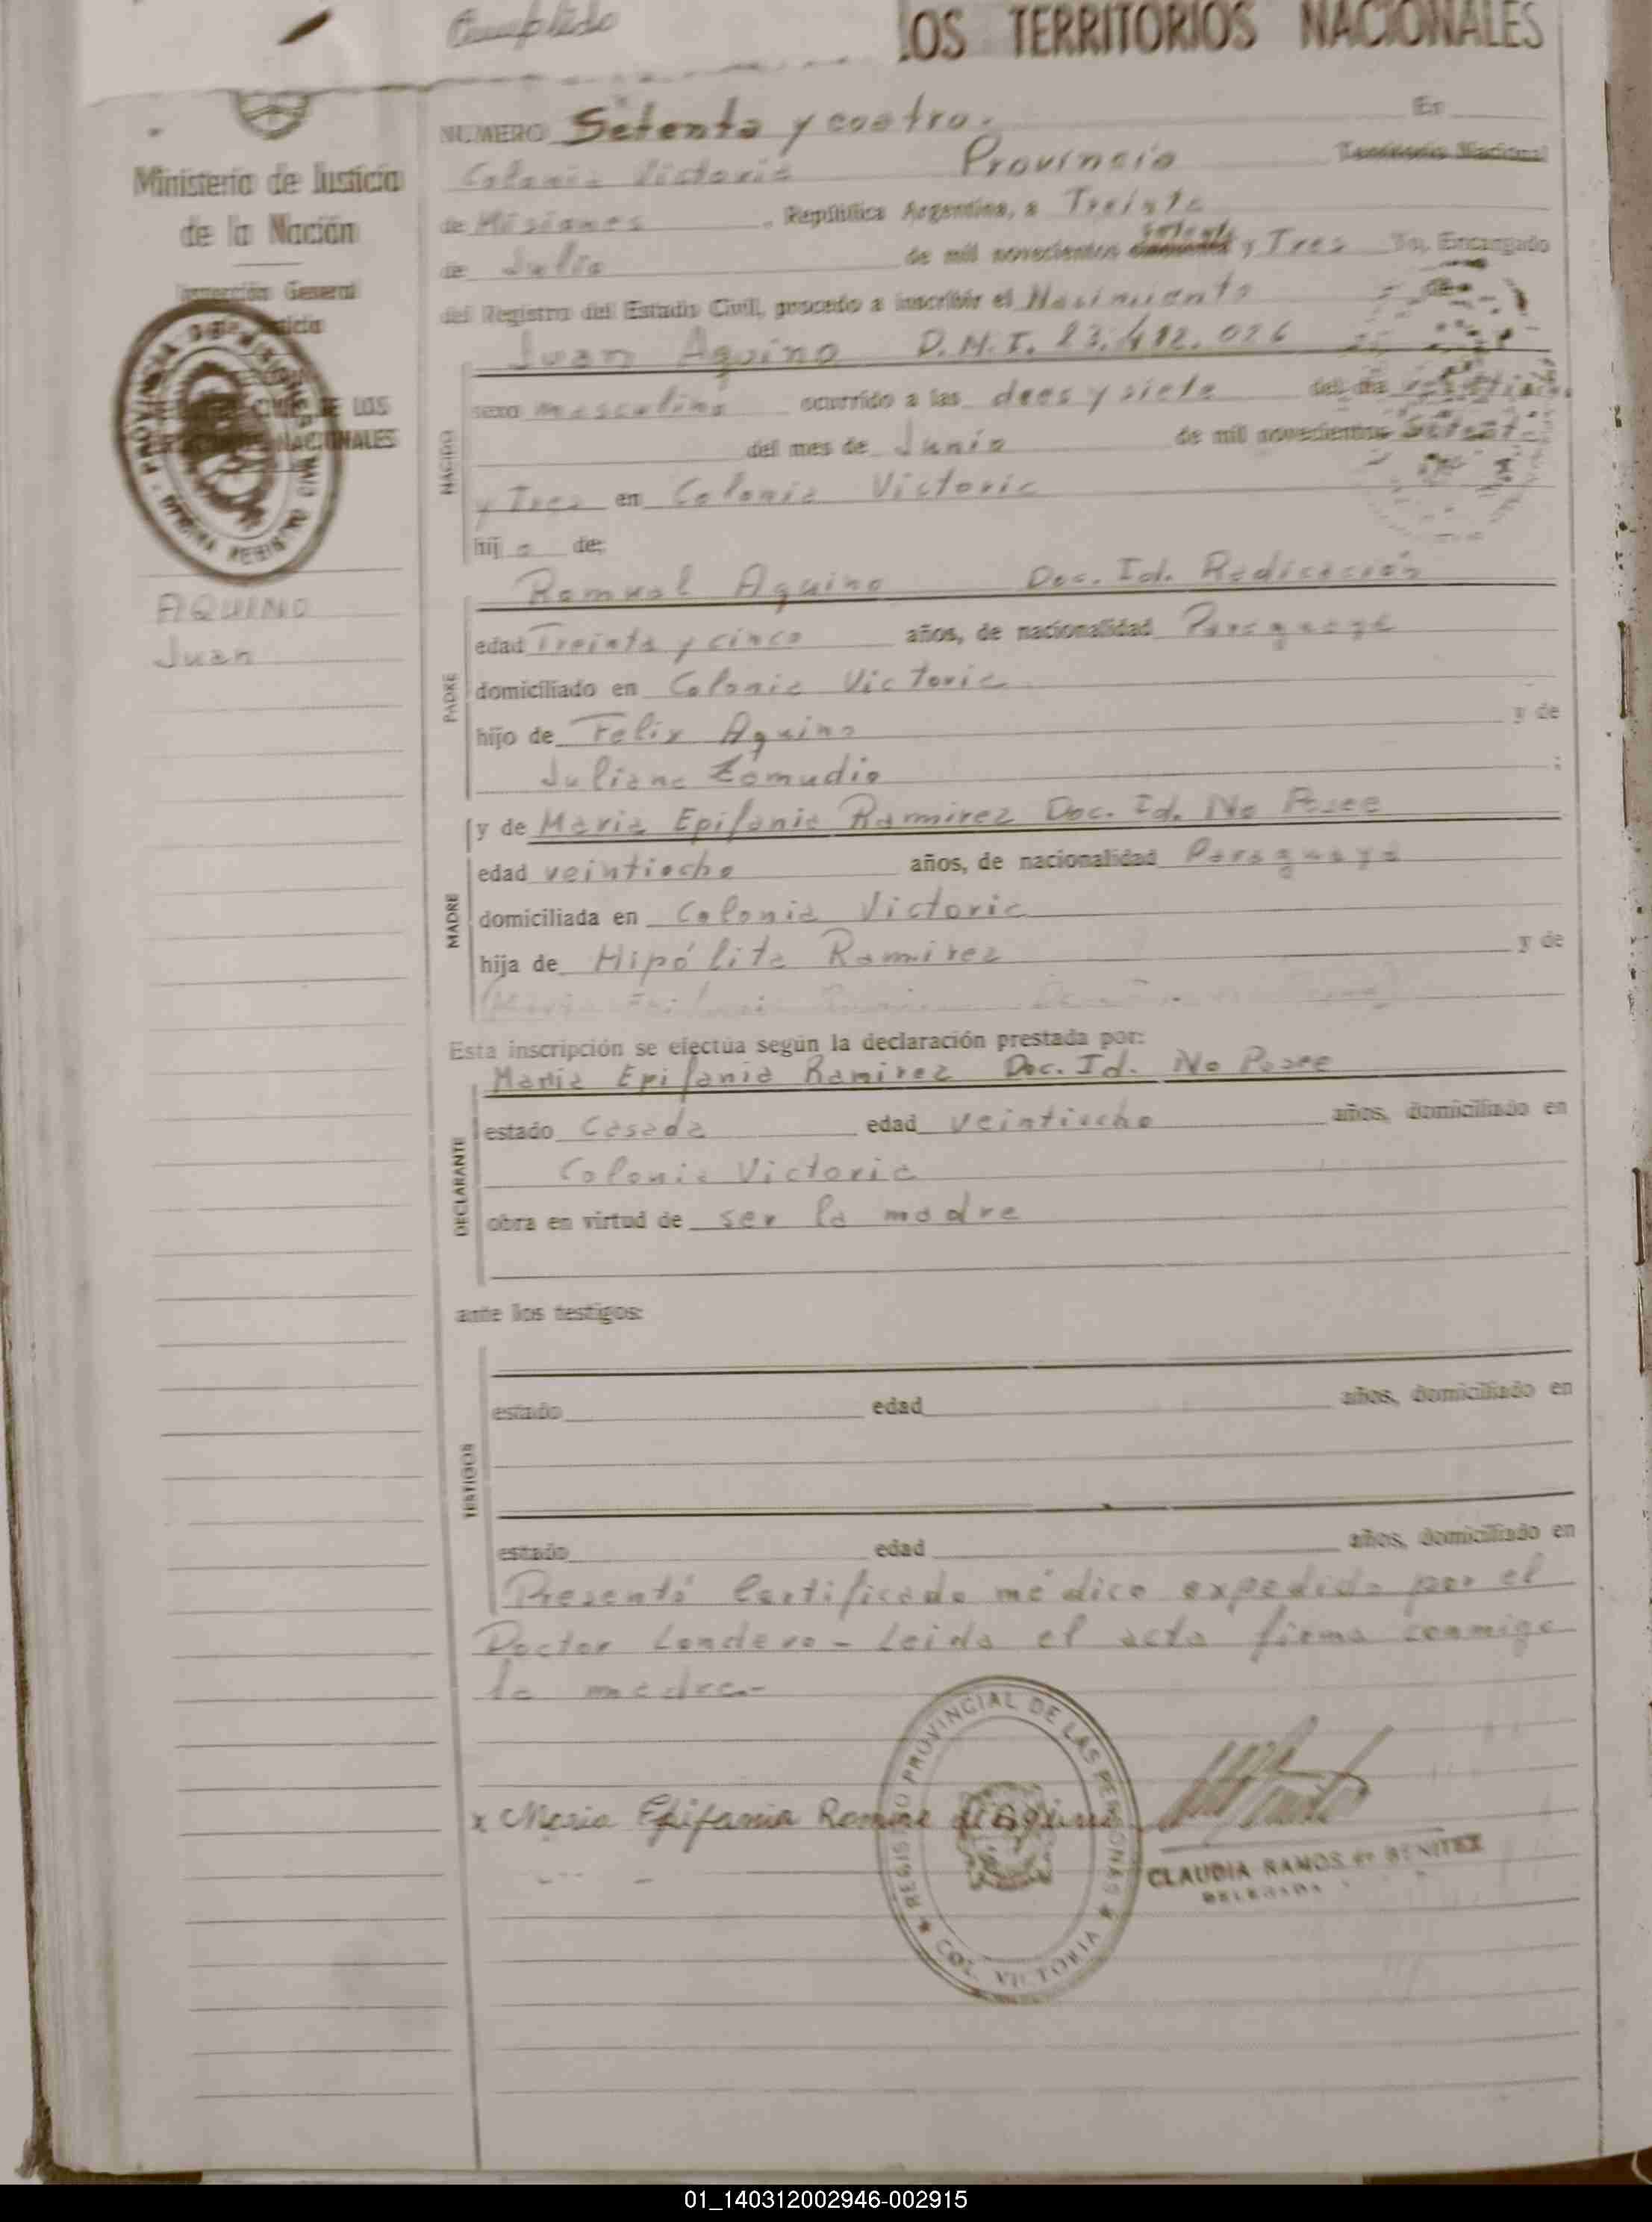 Cumplido
LOS TERRITORIOS NACIONALES
NUMERO Setenta y cuatro. En
Colonia Victoria Provincia Territorio Nacional
de Misiones, República Argentina, a Treinta
de Julio de mil novecientos cincuenta setenta y Tres Yo, Encargado
del Registro del Estado Civil, procedo a inscribir el Nacimiento
Ministerio de Justicia
de la Nación
Inspección General
de Justicia
CIVIL DE LOS
NACIONALES
PROVINCIA DE MISIONES
AQUINO
Juan
NACIDO
Juan Aquino D.N.I. 23.412.026
sexo masculino ocurrido a las diez y siete del día
del mes de Junio de mil novecientos Setenta
y Tres en Colonia Victoria
hij o de:
PADRE
Romual Aquino Doc. Id. Radicación
edad Treinta y cinco años, de nacionalidad Paraguaya
domiciliado en Colonia Victoria
hijo de Felix Aquino y de
Juliana Zamudio ;
MADRE
y de Maria Epifania Ramirez Doc. Id. No Posee
edad veintiocho años, de nacionalidad Paraguaya
domiciliada en Colonia Victoria
hija de Hipólita Ramirez y de
Esta inscripción se efectúa según la declaración prestada por:
DECLARANTE
Maria Epifania Ramirez Doc. Id. No Posee
estado Casada edad veintiocho años, domiciliado en
Colonia Victoria
obra en virtud de ser la madre
ante los testigos:
TESTIGOS
estado edad años, domiciliado en
estado edad años, domiciliado en
Presentó Certificado médico expedido por el
Doctor Londero - Leida el acta firma conmigo
la madre.-
x Maria Epifania Ramire de Aquino
REGISTRO PROVINCIAL DE LAS PERSONAS
COL. VICTORIA
CLAUDIA RAMOS de BENITEZ
DELEGADA
01_140312002946-002915